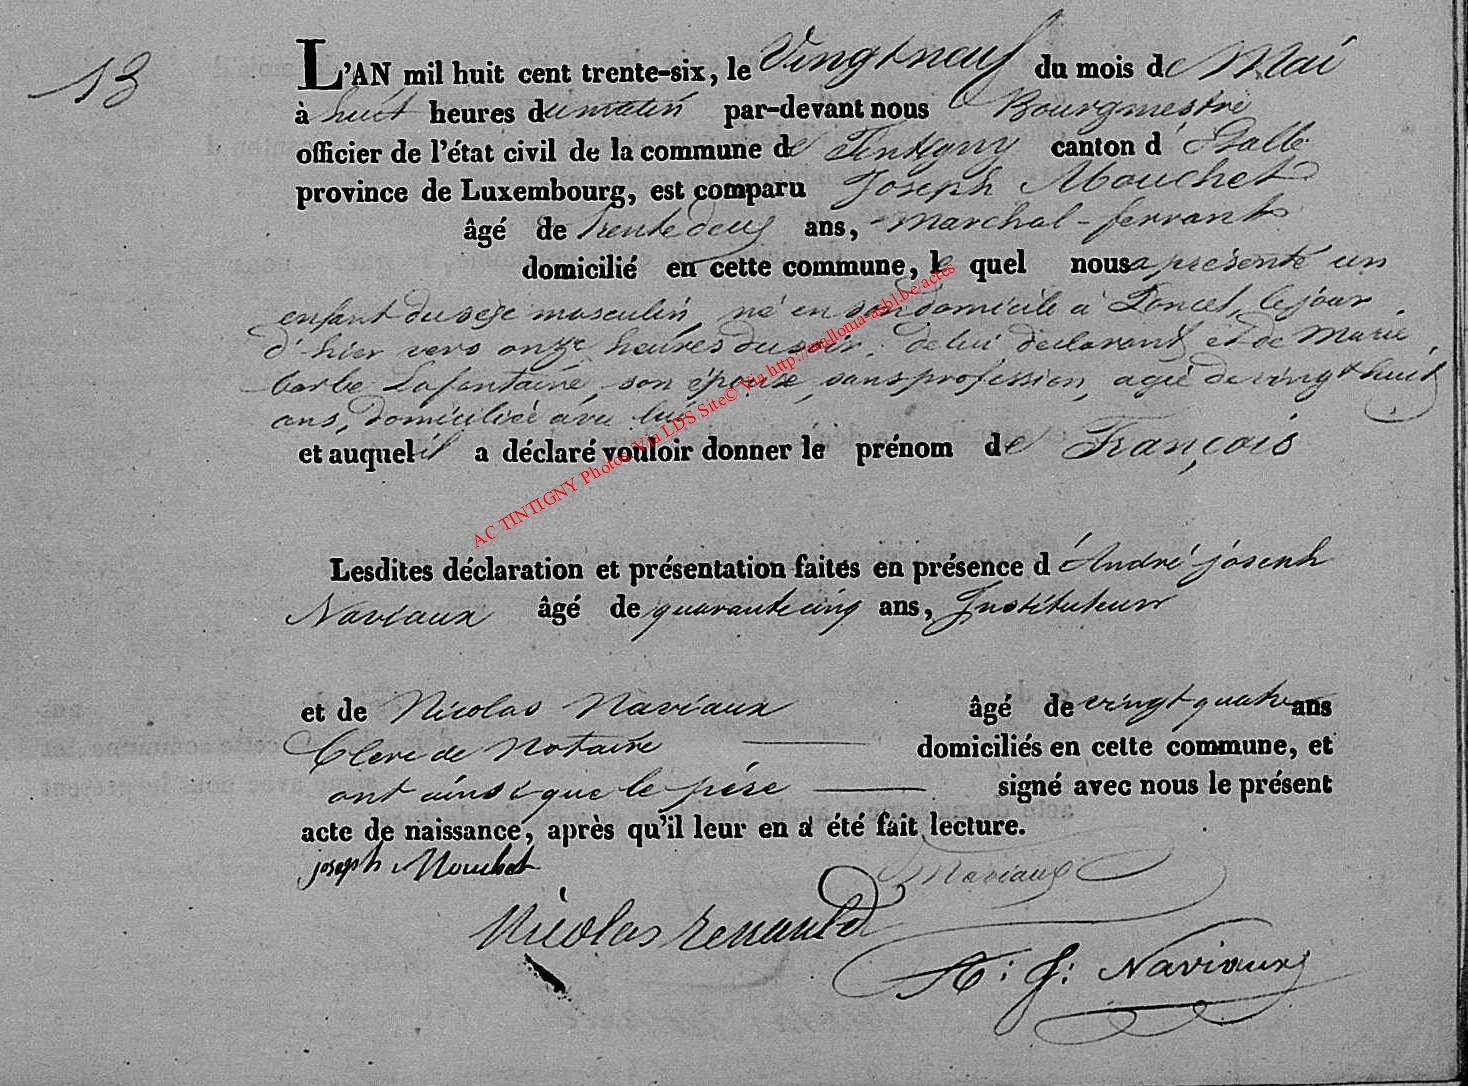 13
L'AN mil huit cent trente-six, le Vingt neuf du mois de Mai
à huit heures du matin par-devant nous Bourgmestre
officier de l'état civil de la commune de Tintigny canton d'Etalle
province de Luxembourg, est comparu Joseph Mouchet
âgé de trente deux ans, marchal-ferrant
domicilié en cette commune, le quel nous a présenté un
enfant du sexe masculin, né en son domicile à Poncel, le jour
d'hier vers onze heures du soir, de lui déclarant et de Marie
barbe Lafontaine, son épouse, sans profession, agée de vingt huit
ans, domiciliée avec lui
et auquel il a déclaré vouloir donner le prénom de François
AC TINTIGNY Photos Via LDS Site© Via http://wallonia-asbl.be/actes
Lesdites déclaration et présentation faites en présence d'André joseph
Naviaux âgé de quarante cinq ans, Instituteur
et de Nicolas Naviaux âgé de vingt quatre ans
Clerc de Notaire domiciliés en cette commune, et
ont ainsi que le père signé avec nous le présent
acte de naissance, après qu'il leur en a été fait lecture.
joseph Mouchet Naviaux
Nicolas renauld
A: J: Naviaux